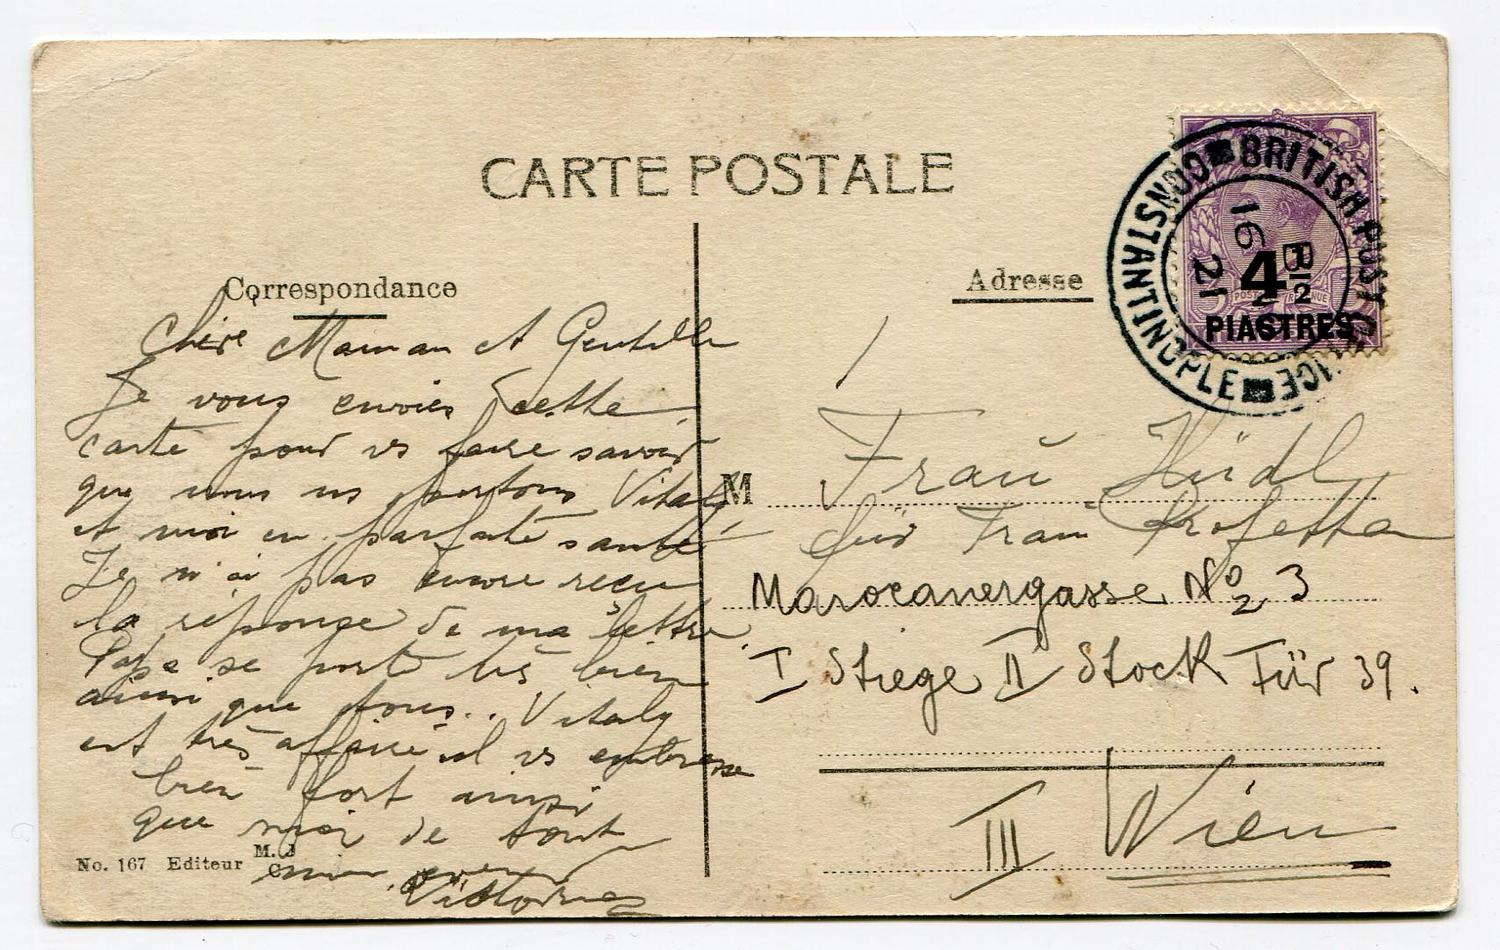 CARTE POSTALE
BRITISH POST OFFICE CONSTANTINOPLE
16
21
4 1/2
PIASTRES
Correspondance
Adresse
Chère Maman et Gentille
Je vous envoies cette
carte pour vs faire savoir
que nous ns portons Vitaly
et moi en parfaite santé
Je n'ai pas encore recu
la réponse de ma lettre.
Papa se port très bien
ainsi que tous.. Vitaly
est très affairé il vs embrasse
bien fort ainsi
que moi de tout
mon
Victorine
M
Frau Hüdl
für Frau
Marocanergasse No 3
I Stiege II Stock Tür 39.
III Wien
No. 167 Editeur M. J
C